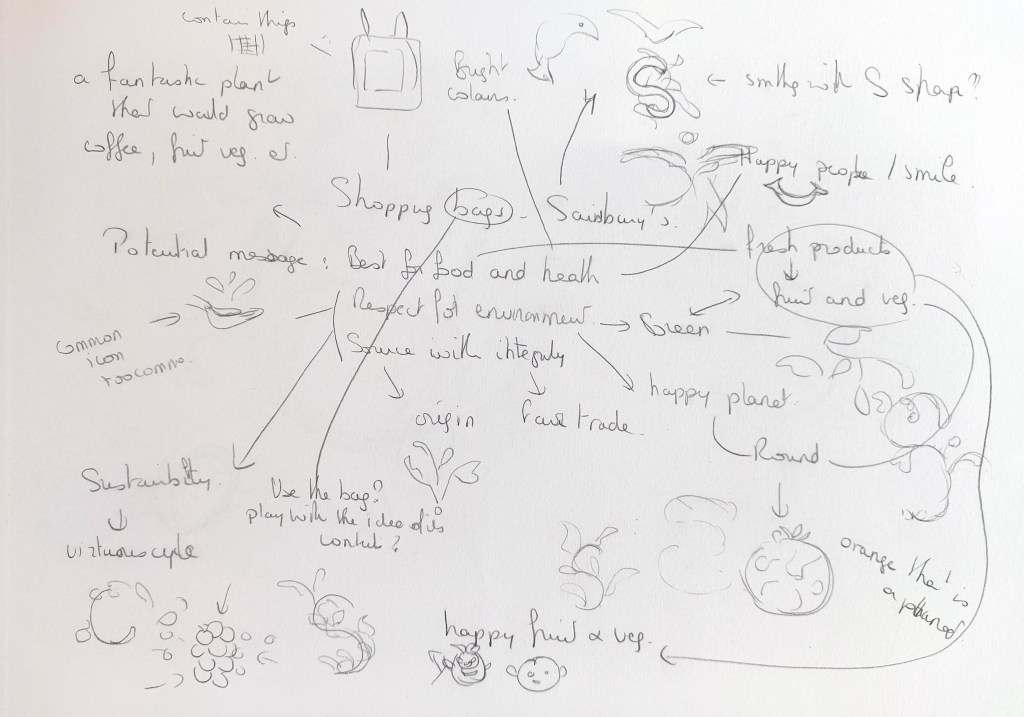 contain things
a fantastic plant
that would grow
coffee, fruit veg. et.
Bright
colours.
S
← something with S shape?
Happy people / smile.
Shopping bags - Sainsbury's.
Potential message : Best for food and health
fresh products
fruit and veg.
Respect for environment → Green
Source with integrity
common
icon
too common.
happy planet.
origin
fair trade.
Round
Sustainability.
Use the bag?
play with the idea of its
content?
virtuous cycle
orange that is
a planet
happy fruit & veg.